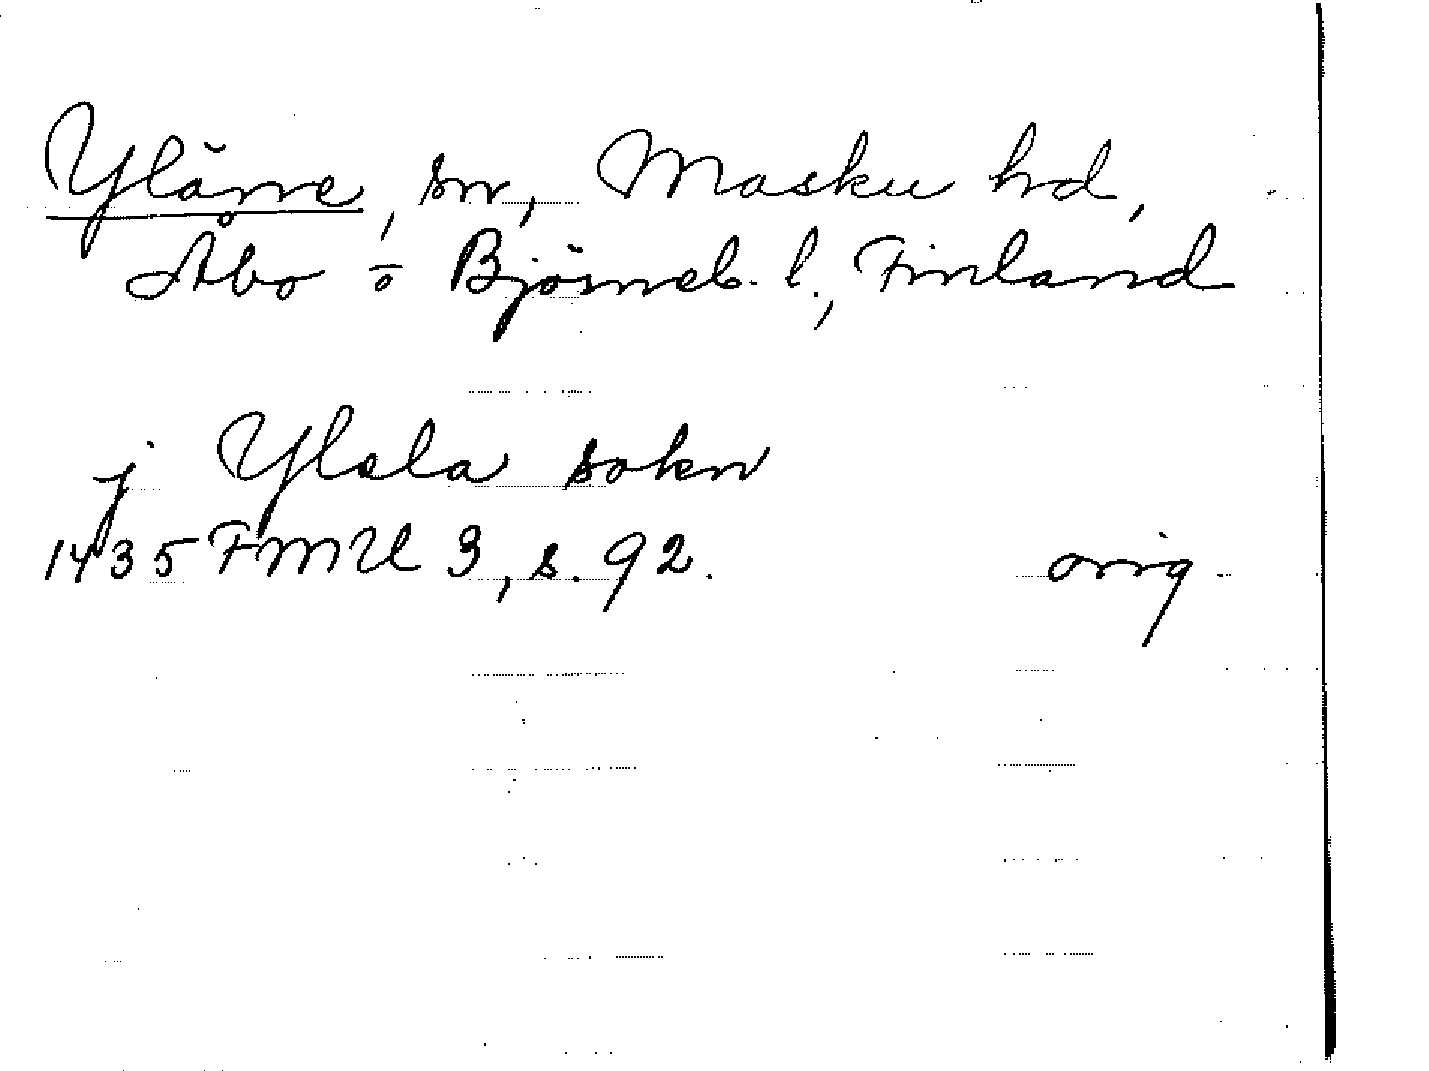 Yläne, sn, Masku hd,
Åbo o Björneb. l., Finland
j Ylala sokn
1435 FMU 3, s. 92. orig.